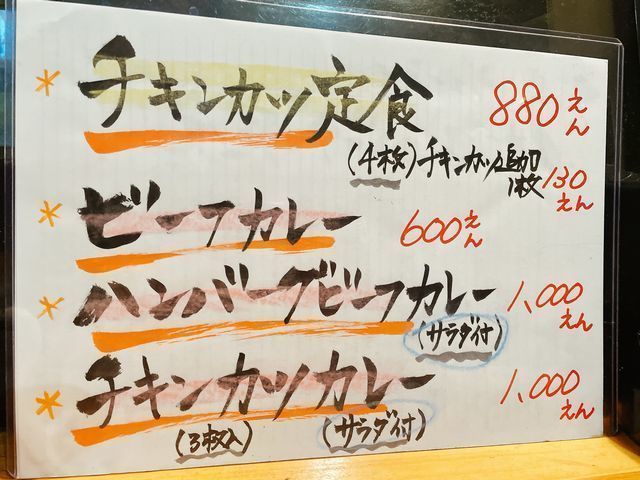 * チキンカツ定食 880えん
(4枚)チキンカツ追加 1枚 130えん
* ビーフカレー 600えん
* ハンバーグビーフカレー 1,000えん
(サラダ付)
* チキンカツカレー 1,000えん
(3枚入) (サラダ付)